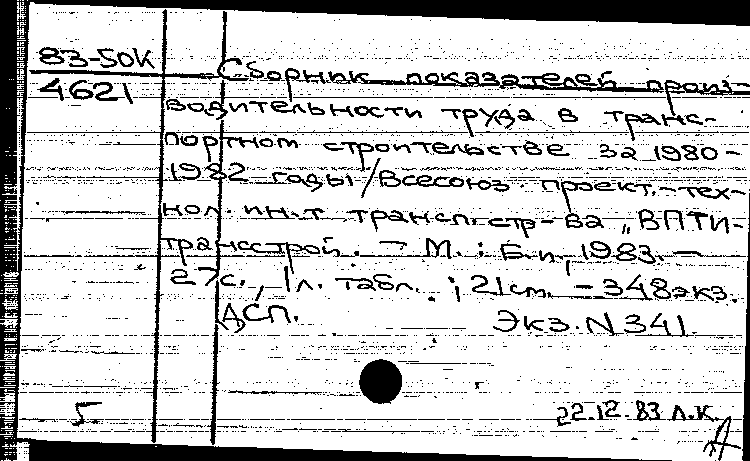 83-50К
4621
Сборник показателей произ-
водительности труда в транс-
портном строительстве за 1980-
1982 годы / Всесоюз. проект.-тех-
нол. ин-т трансп. стр-ва „ВПТИ-
трансстрой. - М. : Б.и., 1983. -
27с., 1л. табл. ; 21см. - 348экз.
ДСП. Экз. N 341.
5. 22.12.83 Л.К.